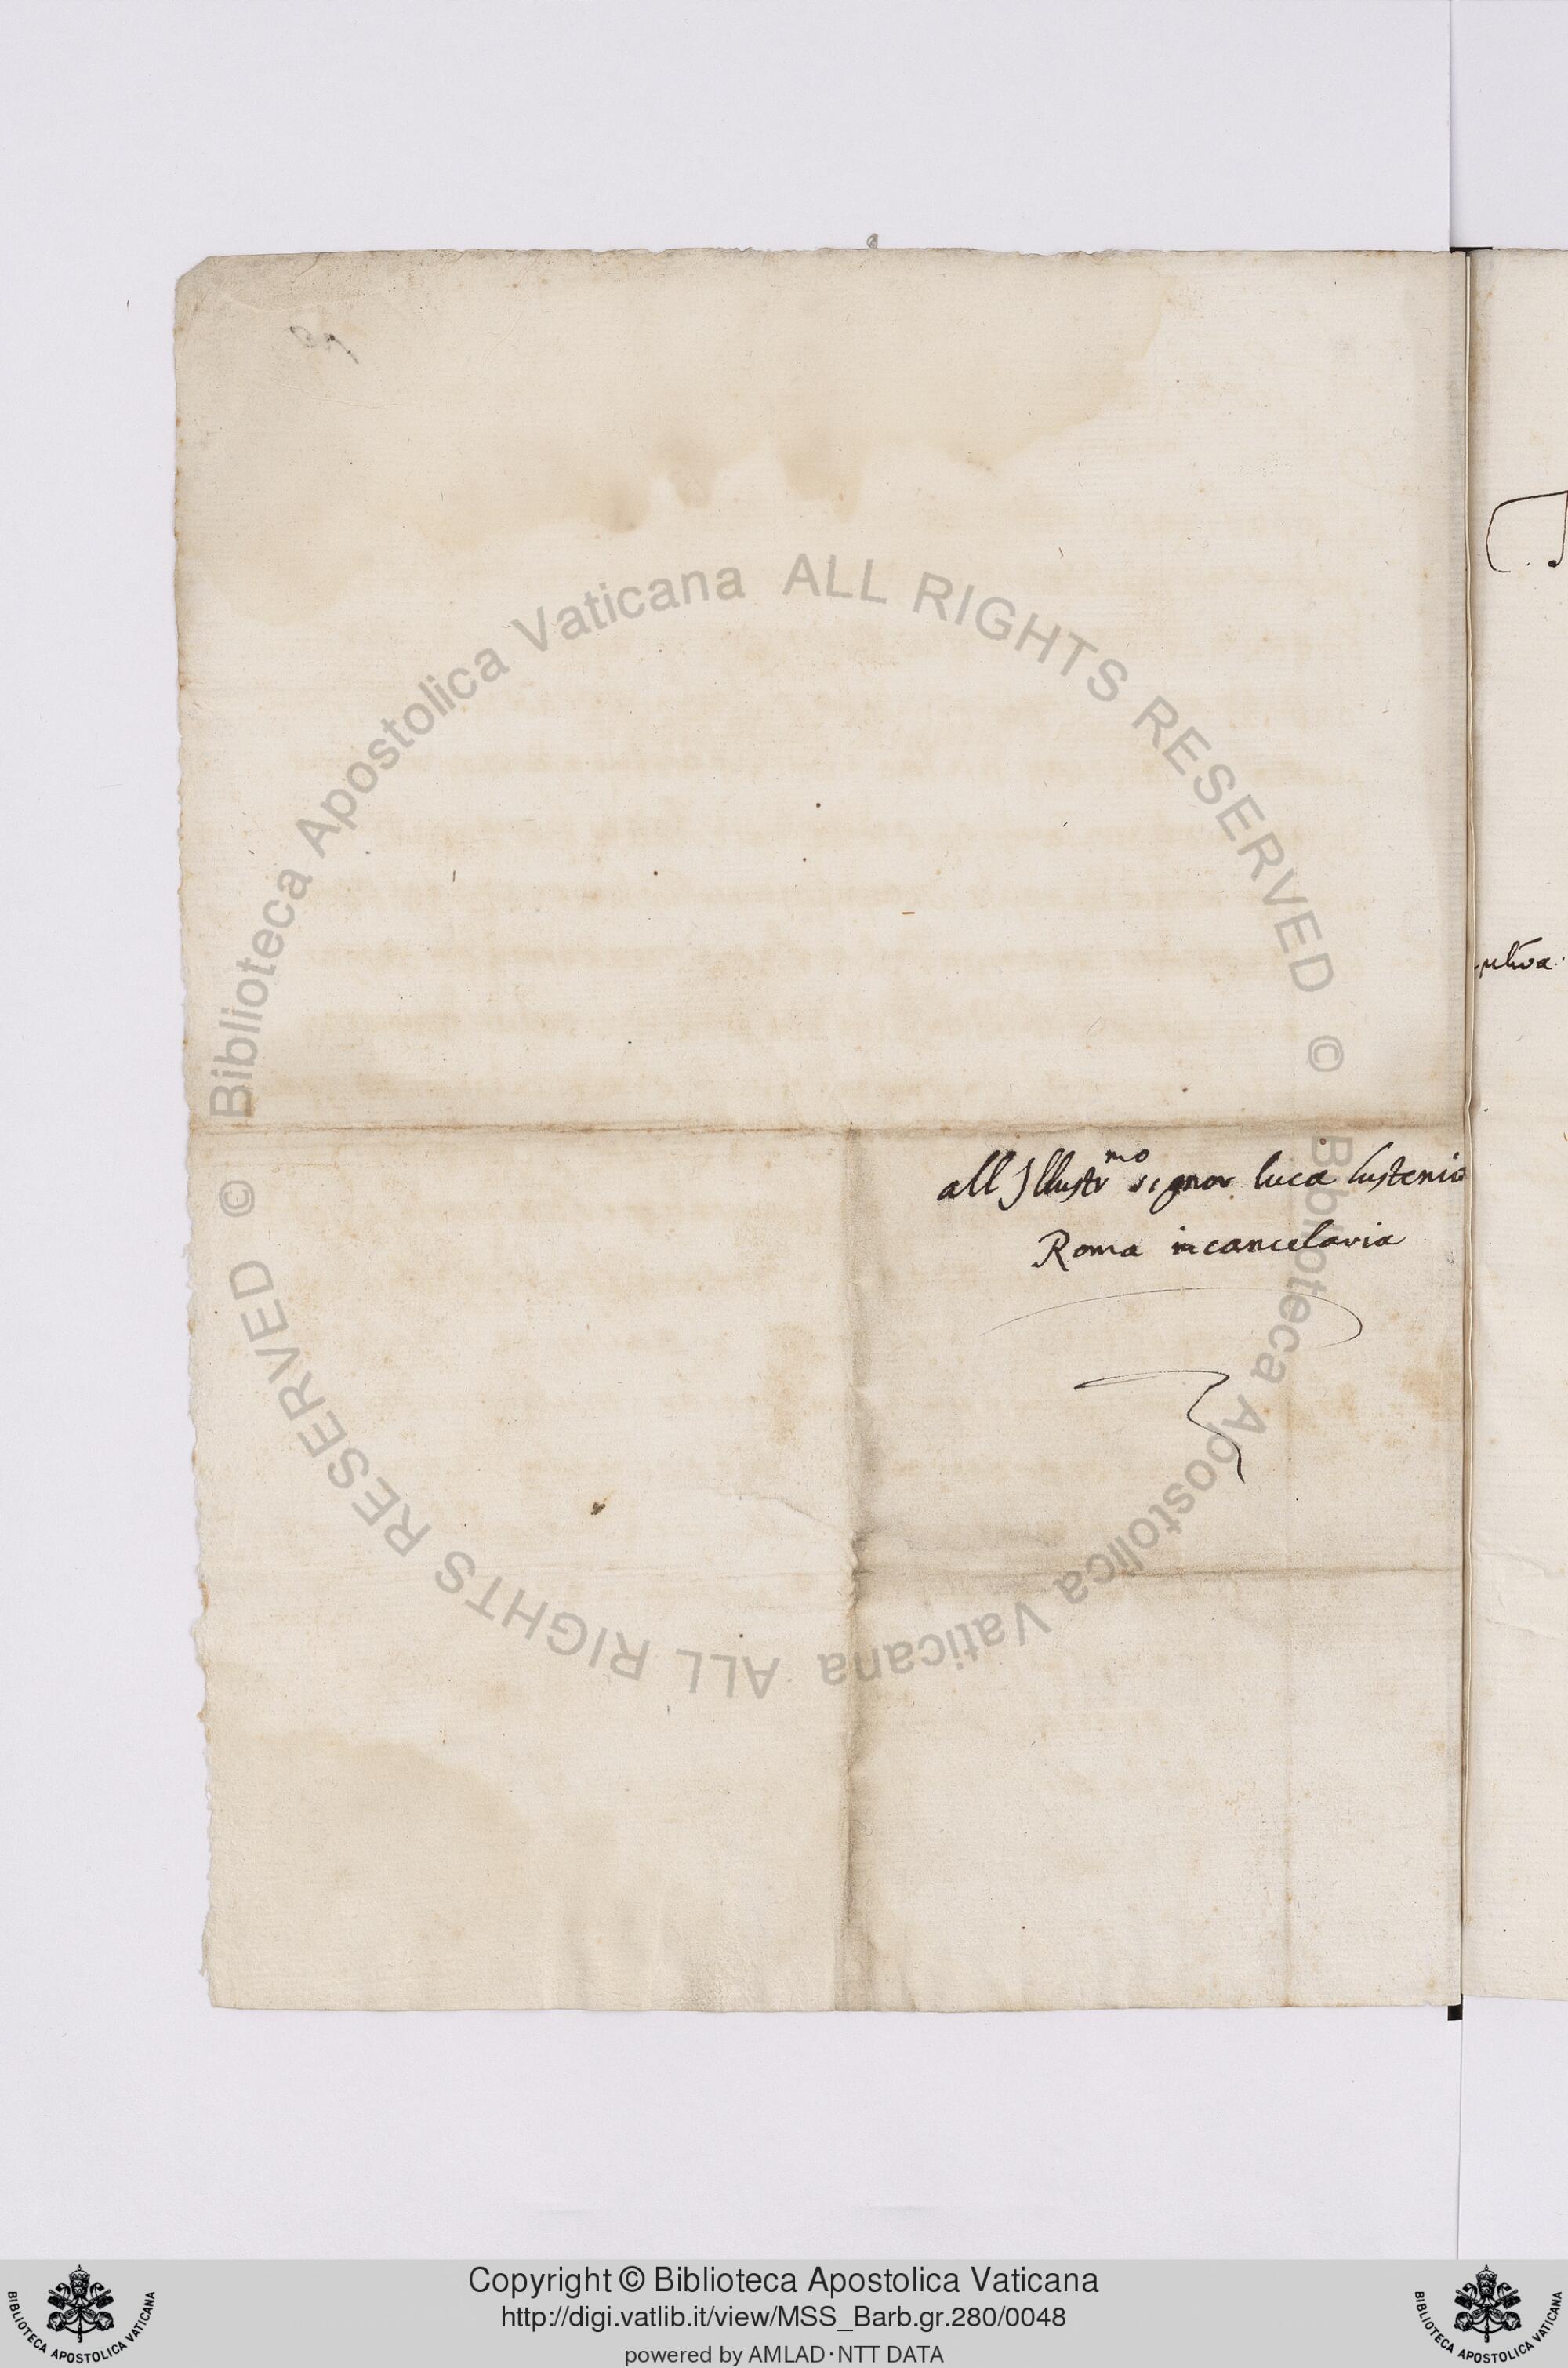 all Jllustr^mo signor luca lustenio
Roma in cancelaria
Biblioteca Apostolica Vaticana ALL RIGHTS RESERVED ©
Biblioteca Apostolica Vaticana ALL RIGHTS RESERVED ©
Copyright © Biblioteca Apostolica Vaticana
http://digi.vatlib.it/view/MSS_Barb.gr.280/0048
powered by AMLAD·NTT DATA
BIBLIOTECA APOSTOLICA VATICANA
BIBLIOTECA APOSTOLICA VATICANA